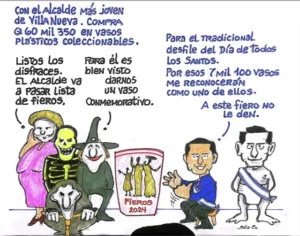 Con el Alcalde más joven
de Villa Nueva. Compra
Q 60 mil 350 en vasos
plásticos coleccionables.
Listos los
disfraces.
El alcalde va
a pasar lista
de fieros.
Para él es
bien visto
darnos
un vaso
conmemorativo.
Para el tradicional
desfile del Día de todos
los Santos.
Por esos 7 mil 100 vasos
me reconocerán
como uno de ellos.
A este fiero no
le den.
FIEROS
2024